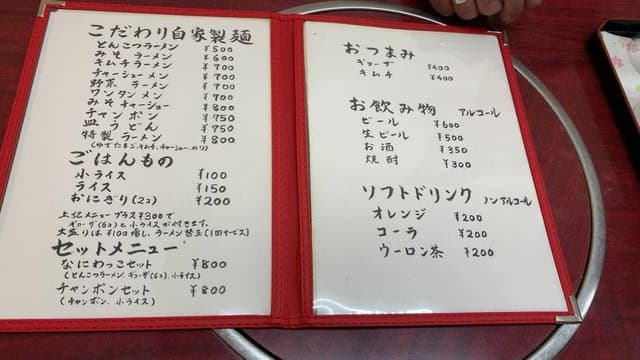 こだわり自家製麺
とんこつラーメン ¥500
みそ ラーメン ¥600
キムチラーメン ¥700
チャーシューメン ¥700
野菜 ラーメン ¥700
ワンタンメン ¥700
みそチャーシュー ¥800
チャンポン ¥750
皿うどん ¥750
特製 ラーメン ¥800
(ゆでたまご、キムチ、チャーシュー、のり)
ごはんもの
小ライス ¥100
ライス ¥150
おにぎり(2コ) ¥200
上記メニュープラス¥300で
ギョーザ(6コ)と小ライスが付きます。
大盛りは¥100増し、ラーメン替玉(1回サービス)
セットメニュー
なにわっこセット ¥800
(とんこつラーメン、ギョーザ(6コ)、小ライス)
チャンポンセット ¥800
(チャンポン、小ライス)
おつまみ
ギョーザ ¥400
キムチ ¥400
お飲み物 アルコール
ビール ¥600
生ビール ¥500
お酒 ¥350
焼酎 ¥300
ソフトドリンク ノンアルコール
オレンジ ¥200
コーラ ¥200
ウーロン茶 ¥200